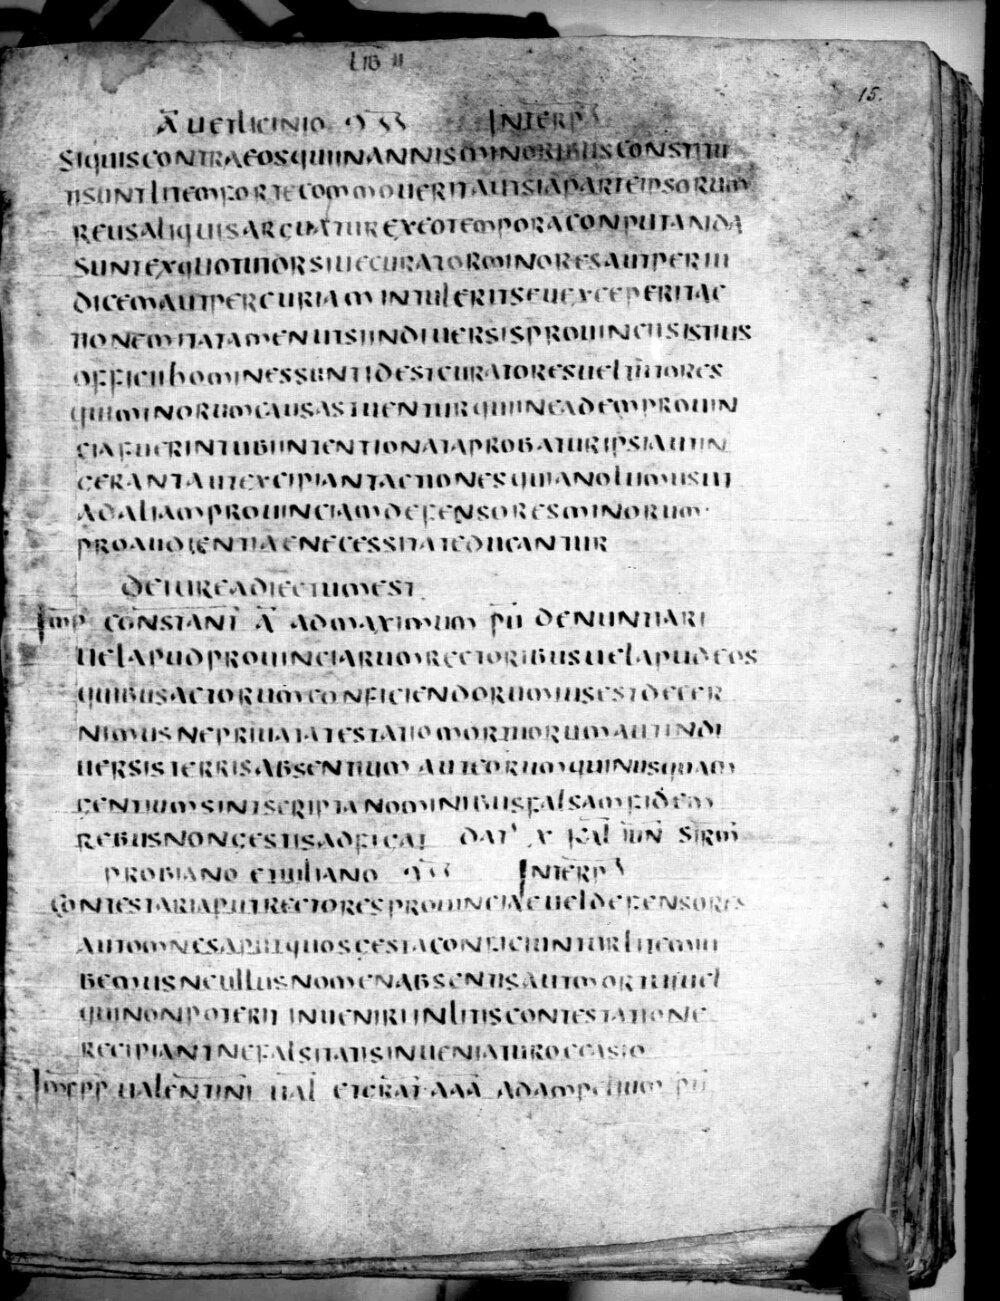 LIB II
15.
A UETLICINIO CSS INTERPS
SIQUISCONTRAEOSQUIINANNISMINORIBUSCONSTITU
TISUNTLITEMFORTECOMMOUERITAUTSIAPARTEIPSORUM
REUSALIQUISARGUATUREXEOTEMPORACONPUTANDA
SUNTEXQUOTUTORSIUECURATORMINORESAUTPERIU
DICEMAUTPERCURIAMINTULERITSEUEXCEPERITAC
TIONEMITATAMENUTSIINDIUERSISPROUINCIISISTIUS
OFFICIIHOMINESSUNTIDESTCURATORESUELTUTORES
QUIMINORUMCAUSASTUENTURQUIINEADEMPROUIN
CIAFUERINTUBIINTENTIONATAPROBATURIPSIAUTIN
CERANTAUTEXCIPIANTACTIONESQUIANOLUMUSUT
ADALIAMPROUINCIAMDEFENSORESMINORUM·
PROAUDIENTIAENECESSITATEDUCANTUR
DEIUREADIECTUMEST
IMP CONSTANT A ADMAXIMUM PU DENUNTIARI
UELAPUDPROUINCIARUMRECTORIBUSUELAPUDEOS
QUIBUSACTORUMCONFICIENDORUMIUSESTDECER
NIMUSNEPRIUATATESTATIOMORTUORUMAUTINDI
UERSISTERRISABSENTIUM AUTEORUMQUINUSQUAM
GENTIUMSINTSCRIPTANOMINIBUSFALSAMFIDEM
REBUSNONGESTISADFIGAT DAT X KAL IUN SIRM
PROBIANO ETIULIANO CSS INTERPS
CONTESTARIAPUTRECTORESPROUINCIAEUELDEFENSORES
AUTOMNESAPUTQUOSGESTACONFICIUNTURLITEMIU
BEMUSNEULLUSNOMENABSENTISAUTMORTUIUEL
QUINONPOTERIT INUENIRIINLITISCONTESTATIONE
RECIPIANTNEFALSITATISINUENIATUROCCASIO
IMPPP UALENTINI UAL ETGRAT AAA ADAMPELIUM PU